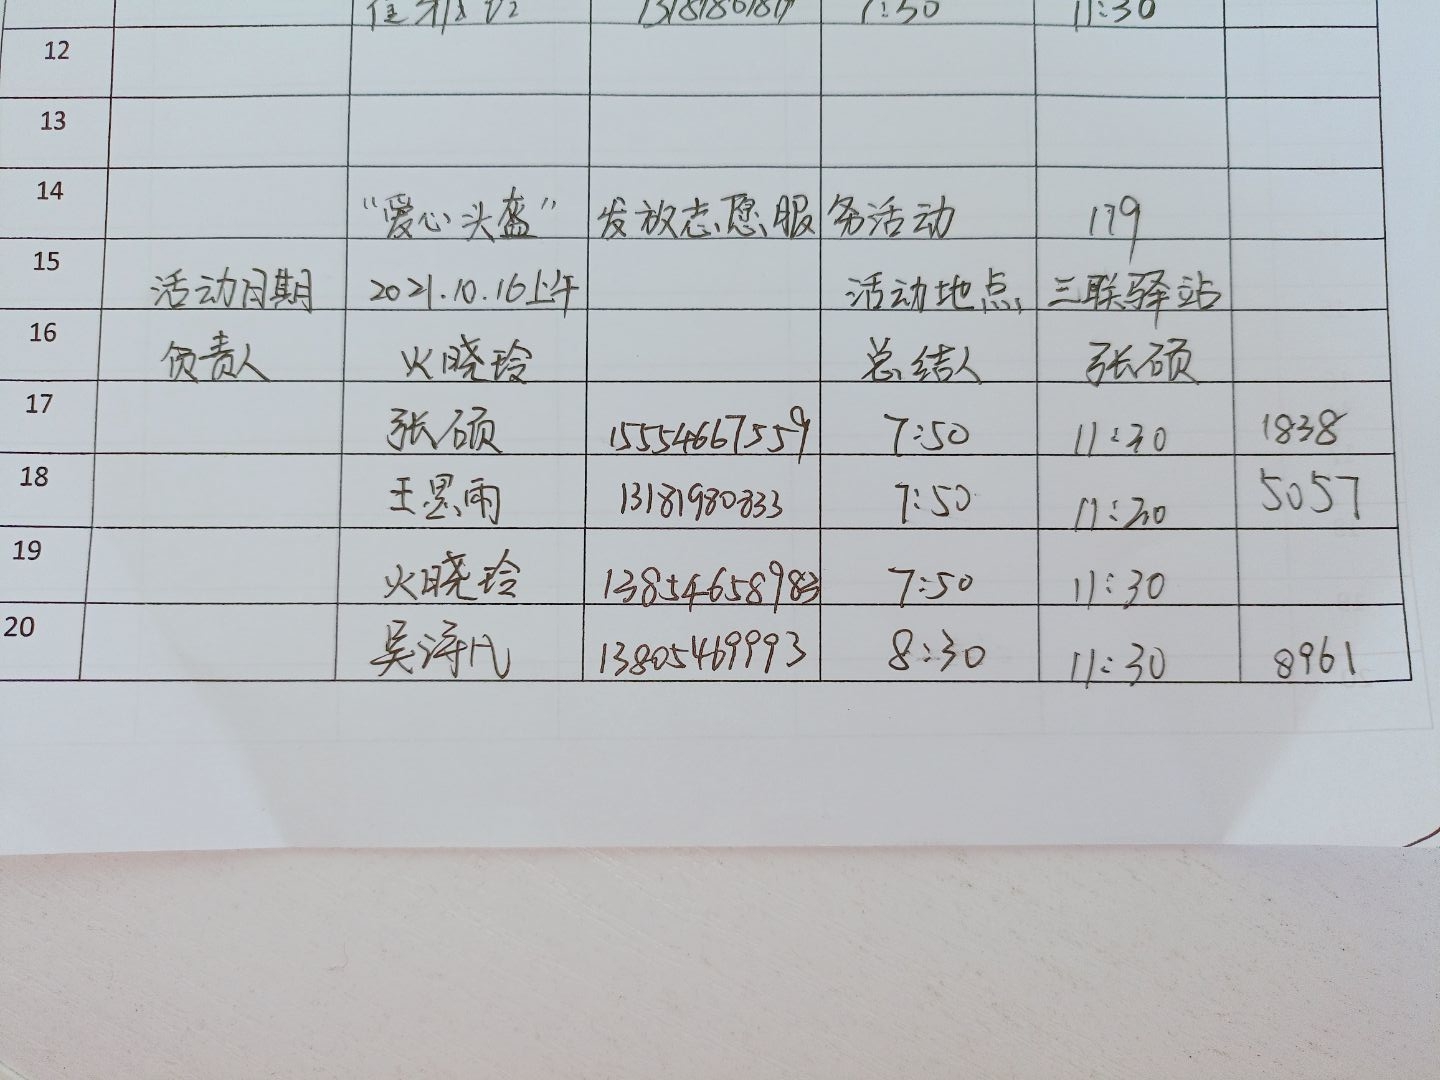 7:50 11:30
12
13
14 “爱心头盔”发放志愿服务活动 179
15 活动日期 2021.10.16上午 活动地点 三联驿站
16 负责人 火晓玲 总结人 张硕
17 张硕 15554667559 7:50 11:30 1838
18 王昱雨 13181980833 7:50 11:30 5057
19 火晓玲 13854658983 7:50 11:30
20 吴涛凡 13805469993 8:30 11:30 8961